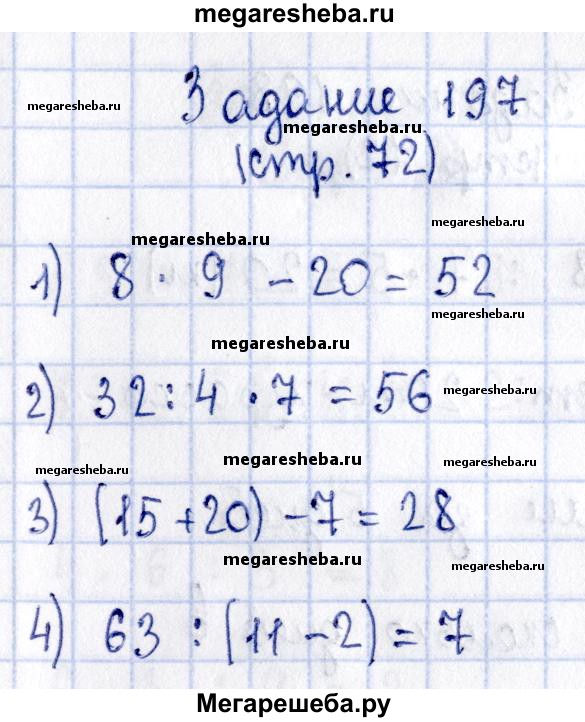 megaresheba.ru
megaresheba.ru
Задание 197
megaresheba.ru
(стр. 72)
megaresheba.ru
megaresheba.ru
1) 8 · 9 - 20 = 52
megaresheba.ru
megaresheba.ru
2) 32 : 4 · 7 = 56
megaresheba.ru
megaresheba.ru
megaresheba.ru
megaresheba.ru
3) (15 + 20) - 7 = 28
megaresheba.ru
megaresheba.ru
4) 63 : (11 - 2) = 7
Мегарешеба.ру